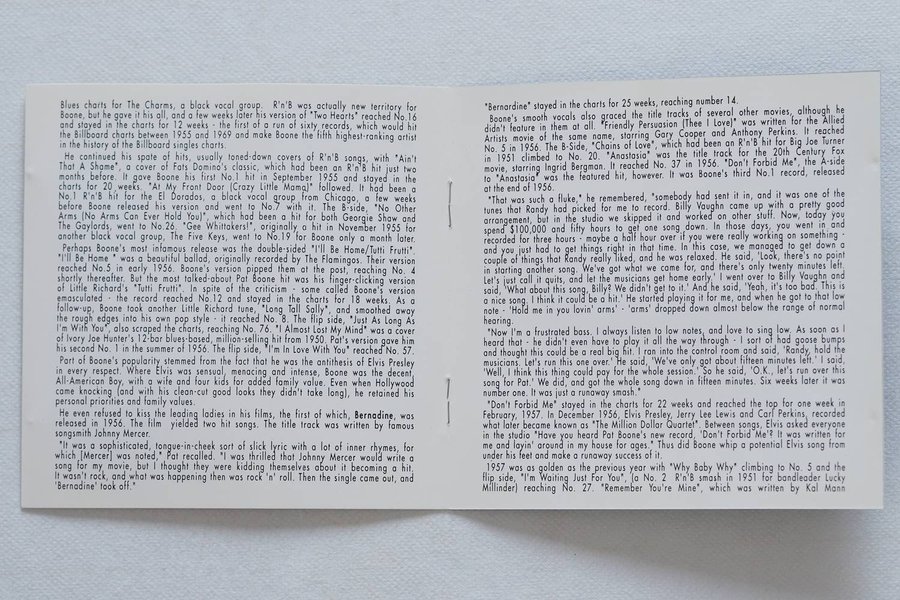 Blues charts for The Charms, a black vocal group. R'n'B was actually new territory for
Boone, but he gave it his all, and a few weeks later his version of "Two Hearts" reached No.16
and stayed in the charts for 12 weeks - the first of a run of sixty records, which would hit
the Billboard charts between 1955 and 1969 and make Boone the fifth highest-ranking artist
in the history of the Billboard singles charts.
He continued his spate of hits, usually toned-down covers of R'n'B songs, with "Ain't
That A Shame", a cover of Fats Domino's classic, which had been an R'n'B hit just two
months before. It gave Boone his first No.1 hit in September 1955 and stayed in the
charts for 20 weeks. "At My Front Door (Crazy Little Mama)" followed. It had been a
No.1 R'n'B hit for the El Dorados, a black vocal group from Chicago, a few weeks
before Boone released his version and went to No.7 with it. The B-side, "No Other
Arms (No Arms Can Ever Hold You)", which had been a hit for both Georgie Shaw and
The Gaylords, went to No.26. "Gee Whittakers!", originally a hit in November 1955 for
another black vocal group, The Five Keys, went to No.19 for Boone only a month later.
Perhaps Boone's most infamous release was the double-sided "I'll Be Home/Tutti Frutti".
"I'll Be Home " was a beautiful ballad, originally recorded by The Flamingos. Their version
reached No.5 in early 1956. Boone's version pipped them at the post, reaching No. 4
shortly thereafter. But the most talked-about Pat Boone hit was his finger-clicking version
of Little Richard's "Tutti Frutti". In spite of the criticism - some called Boone's version
emasculated - the record reached No.12 and stayed in the charts for 18 weeks. As a
follow-up, Boone took another Little Richard tune, "Long Tall Sally", and smoothed away
the rough edges into his own pop style - it reached No. 8. The flip side, "Just As Long As
I'm With You", also scraped the charts, reaching No. 76. "I Almost Lost My Mind" was a cover
of Ivory Joe Hunter's 12-bar blues-based, million-selling hit from 1950. Pat's version gave him
his second No.1 in the summer of 1956. The flip side, "I'm In Love With You" reached No. 57.
Part of Boone's popularity stemmed from the fact that he was the antithesis of Elvis Presley
in every respect. Where Elvis was sensual, menacing and intense, Boone was the decent,
All-American Boy, with a wife and four kids for added family value. Even when Hollywood
came knocking (and with his clean-cut good looks they didn't take long), he retained his
personal priorities and family values.
He even refused to kiss the leading ladies in his films, the first of which, Bernadine, was
released in 1956. The film yielded two hit songs. The title track was written by famous
songsmith Johnny Mercer.
"It was a sophisticated, tongue-in-cheek sort of slick lyric with a lot of inner rhymes, for
which [Mercer] was noted," Pat recalled. "I was thrilled that Johnny Mercer would write a
song for my movie, but I thought they were kidding themselves about it becoming a hit.
It wasn't rock, and what was happening then was rock 'n' roll. Then the single came out, and
'Bernadine' took off."
"Bernardine" stayed in the charts for 25 weeks, reaching number 14.
Boone's smooth vocals also graced the title tracks of several other movies, although he
didn't feature in them at all. "Friendly Persuasion (Thee I Love)" was written for the Allied
Artists movie of the same name, starring Gary Cooper and Anthony Perkins. It reached
No. 5 in 1956. The B-Side, "Chains of Love", which had been an R'n'B hit for Big Joe Turner
in 1951 climbed to No. 20. "Anastasia" was the title track for the 20th Century Fox
movie, starring Ingrid Bergman. It reached No. 37 in 1956. "Don't Forbid Me", the A-side
to "Anastasia" was the featured hit, however. It was Boone's third No.1 record, released
at the end of 1956.
"That was such a fluke," he remembered, "somebody had sent it in, and it was one of the
tunes that Randy had picked for me to record. Billy Vaughn came up with a pretty good
arrangement, but in the studio we skipped it and worked on other stuff. Now, today you
spend $100,000 and fifty hours to get one song down. In those days, you went in and
recorded for three hours - maybe a half hour over if you were really working on something -
and you just had to get things right in that time. In this case, we managed to get down a
couple of things that Randy really liked, and he was relaxed. He said, 'Look, there's no point
in starting another song. We've got what we came for, and there's only twenty minutes left.
Let's just call it quits, and let the musicians get home early.' I went over to Billy Vaughn and
said, 'What about this song, Billy? We didn't get to it.' And he said, 'Yeah, it's too bad. This is
a nice song. I think it could be a hit.' He started playing it for me, and when he got to that low
note - 'Hold me in you lovin' arms' - 'arms' dropped down almost below the range of normal
hearing.
"Now I'm a frustrated bass. I always listen to low notes, and love to sing low. As soon as I
heard that - he didn't even have to play it all the way through - I sort of had goose bumps
and thought this could be a real big hit. I ran into the control room and said, 'Randy, hold the
musicians. Let's run this one over.' He said, 'We've only got about fifteen minutes left.' I said,
'Well, I think this thing could pay for the whole session.' So he said, 'O.K., let's run over this
song for Pat.' We did, and got the whole song down in fifteen minutes. Six weeks later it was
number one. It was just a runaway smash."
"Don't Forbid Me" stayed in the charts for 22 weeks and reached the top for one week in
February, 1957. In December 1956, Elvis Presley, Jerry Lee Lewis and Carl Perkins, recorded
what later became known as "The Million Dollar Quartet". Between songs, Elvis asked everyone
in the studio "Have you heard Pat Boone's new record, 'Don't Forbid Me'? It was written for
me and layin' around in my house for ages." Thus did Boone whip a potential Elvis song from
under his feet and make a runaway success of it.
1957 was as golden as the previous year with "Why Baby Why" climbing to No. 5 and the
flip side, "I'm Waiting Just For You", (a No. 2 R'n'B smash in 1951 for bandleader Lucky
Millinder) reaching No. 27. "Remember You're Mine", which was written by Kal Mann